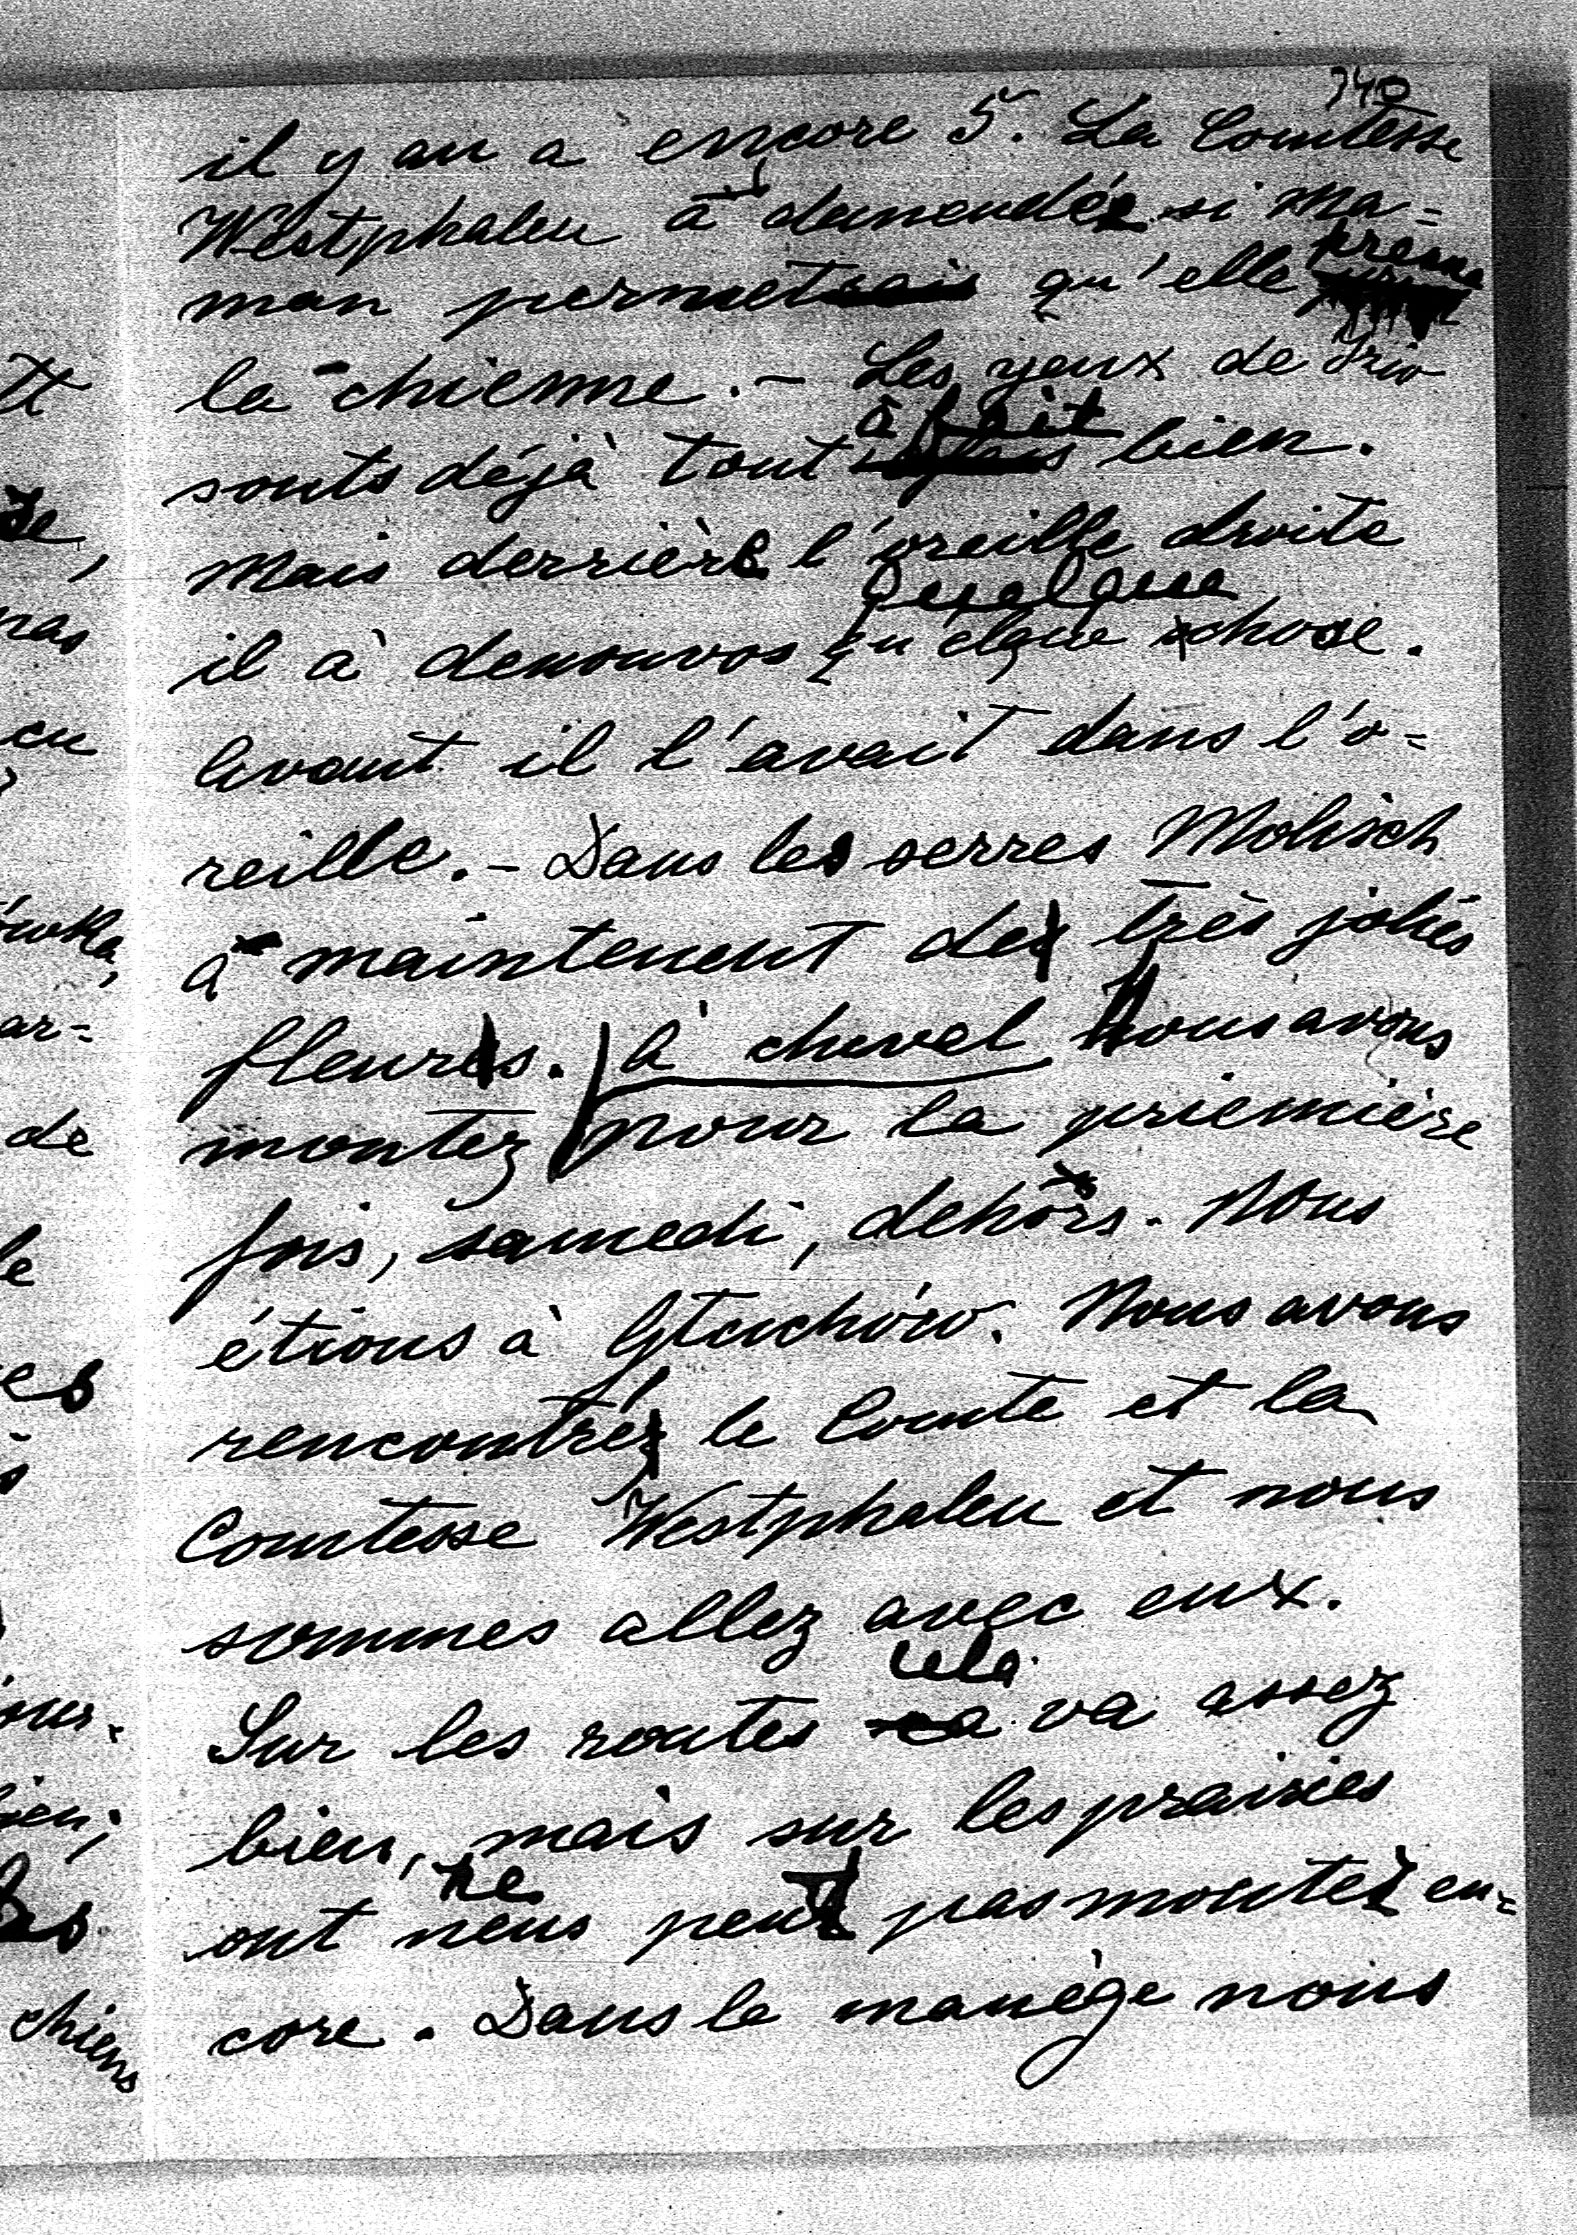 740
il y an a encore 5. La Comtesse
Westphalen a demendée si ma=
man permet qu'elle prenne
la chienne. – Les yeux de Trio
sonts déjà tout à fait bien.
Mais derrière l'oreille droite
il à denouvos quelque chose.
Avant il l'avait dans l'o=
reille. – Dans les serres Molisch
a maintenent des très joliés
fleures. à cheval Nous avons
montez pour la priemière
fois, samedi, dehors. Nous
étions à Głuchów. Nous avons
rencontréz le Comte et la
Comtesse Westphalen et nous
sommes allez avec eux.
Sur les routes cela va assez
bien, mais sur les prairies
ont ne peut pas montez en=
core. Dans le manège nous
tt
ze,
pas
cu
ówka,
ar=
de
le
es
our.
ien;
chiens